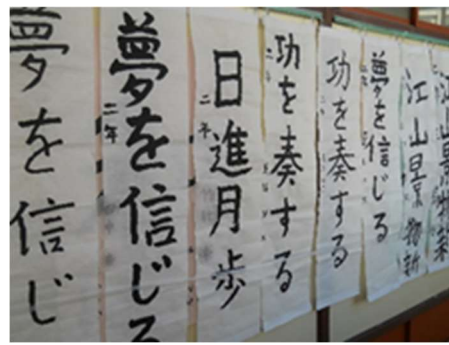 夢を信じ
夢を信じる
二年
日進月歩
二年
功を奏する
功を奏する
夢を信じる
江山景物新
江山景物新